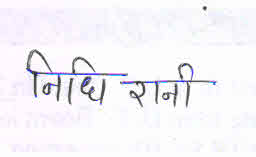 निधि रानी